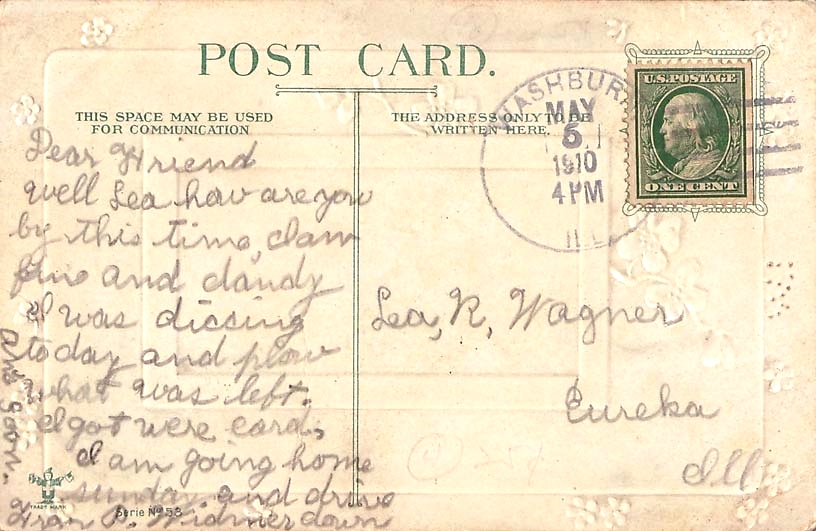 POST CARD.
THIS SPACE MAY BE USED
FOR COMMUNICATION
THE ADDRESS ONLY TO BE
WRITTEN HERE.
WASHBUR
MAY
6
1910
4 PM
ILL
U.S. POSTAGE
ONE CENT
Dear Friend
Well Lea how are you
by this time, I am
fine and dandy
I was discing
today and plow
what was left.
I got were card,
I am going home
sunday and drive
down
Ans soon.
Widmer
Lea, R, Wagner
Eureka
Ill
TRADE MARK
Serie No 53